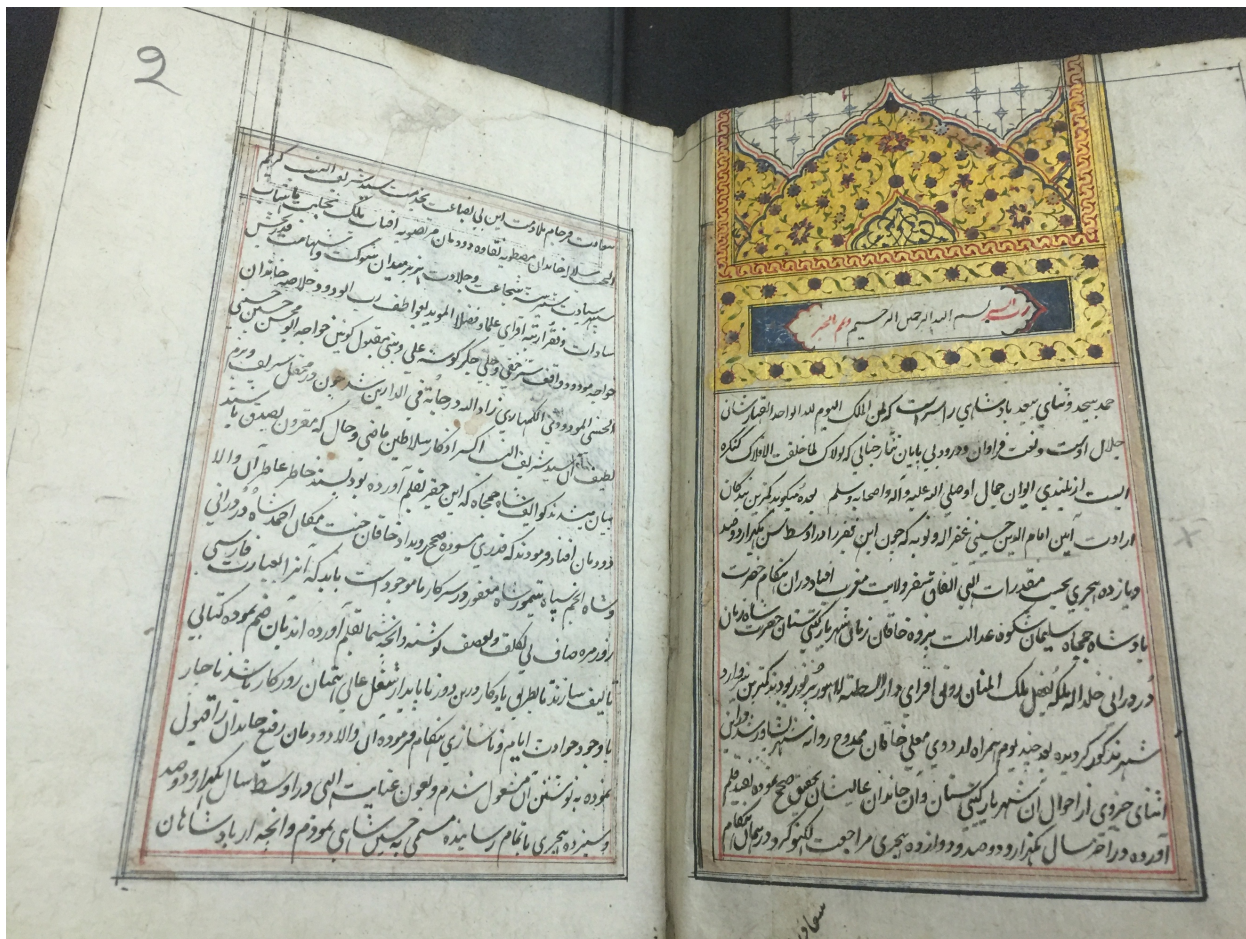 رب یسر بسم الله الرحمن الرحیم وتمم بالخیر
حمد بیحد و ثنای بیعد پادشاهی را سزاست که لمن الملک الیوم لله الواحد القهار شان
جلال اوست و نعت فراوان و درود بی پایان نثار جنابی که لولاک لما خلقت الافلاک کنکره
ایست از بلندی ایوان جمال او صلی الله علیه و اله و اصحابه وسلم بعده میکوید کمترین بندکان
ارادت آیین امام الدین حسینی غفر اله ذنوبه که چون این فقیر را در اوسط سن یکهزار و دو صد
و یازده هجری بحسب مقدرات الهی اتفاق سفر ولایت مغرب افتاد در ان هنکام حضرت
پادشاه جمجاه سلیمان شکوه عدالت پژوه خاقان زمان شهریار کیتی ستان حضرت شاه زمان
در درانی خلد اله ملکه بفضل ملک المنان رونق افزای دار السلطنه لاهور پر نور بودند کمترین وارد
شهر مذکور کردیده بعد چند یوم همراه اردوی معلی خاقان ممدوح روانه شهر پشاور شد و در این
اثنای جزوی از احوال ان شهریار کیتی ستان وان خاندان عالیشان بتحقیق صحیح نموده بقید قلم
آورده در آخر سال یکهزار و دو صد و دوازده هجری مراجعت لکنو کرد در همان هنکام
سعادت
2
سعادت فرجام ملازمت این بی بضاعت بخدمت سید شریف النسب کریم
الحسب سلاله خاندان مصطفویه نقاوه دودمان مرتضویه افتاب فلک نجابت ماهتاب
سپهر سیادت شیر بیشه شجاعت و جلادت هزبر میدان شوکت و شهامت قدربخش
سادات و فقرا رتبه افزای علما و فضلا الموید بعواطف رب الودود خلاصه خاندان
خواجه مودود واقف سر خفی و جلی جکر کوشه علی و نبی مقبول کونین خواجه ابو محسن حسینی
الحسنی المودودی الکمهاری زاد اله درجاته فی الدارین شد چون در محفل شریف و بزم
لطیف آن سید شریف النسب اکثر اذکار سلاطین ماضی و حال که مقرون بصدق باشد
بیان میشد ند کوائف شاه جمجاه که این حقیر بقلم آورده بود پسند خاطر عاطر آن والا
دودمان افتاد فرمودند که قدری مسوده صحیح رویداد خاقان جنت مکان احمد شاه درانی
و شاه انجم سپاه تیمور شاه مغفور در سرکار ما موجود است باید که آنرا بعبارت فارسی
روزمره صاف بی تکلف و تعصف نوشته و انچه شما بقلم آورده اند بان ضم نموده کتابی
تالیف سازند تا بطریق یادکار درین دور ناپایدار شغل عالی همتان روزکار باشد ناچار
با وجود حوادث ایام و ناسازی هنکام فرموده آن والا دودمان رفیع خاندان را قبول
نموده به نوشتن آن مشغول شدم و بعون عنایت الهی در اوسط سال یکهزار و دو صد
و سیزده هجری باتمام رسانیده مسمی به حسین شاهی نمودم و انچه از پادشاهان